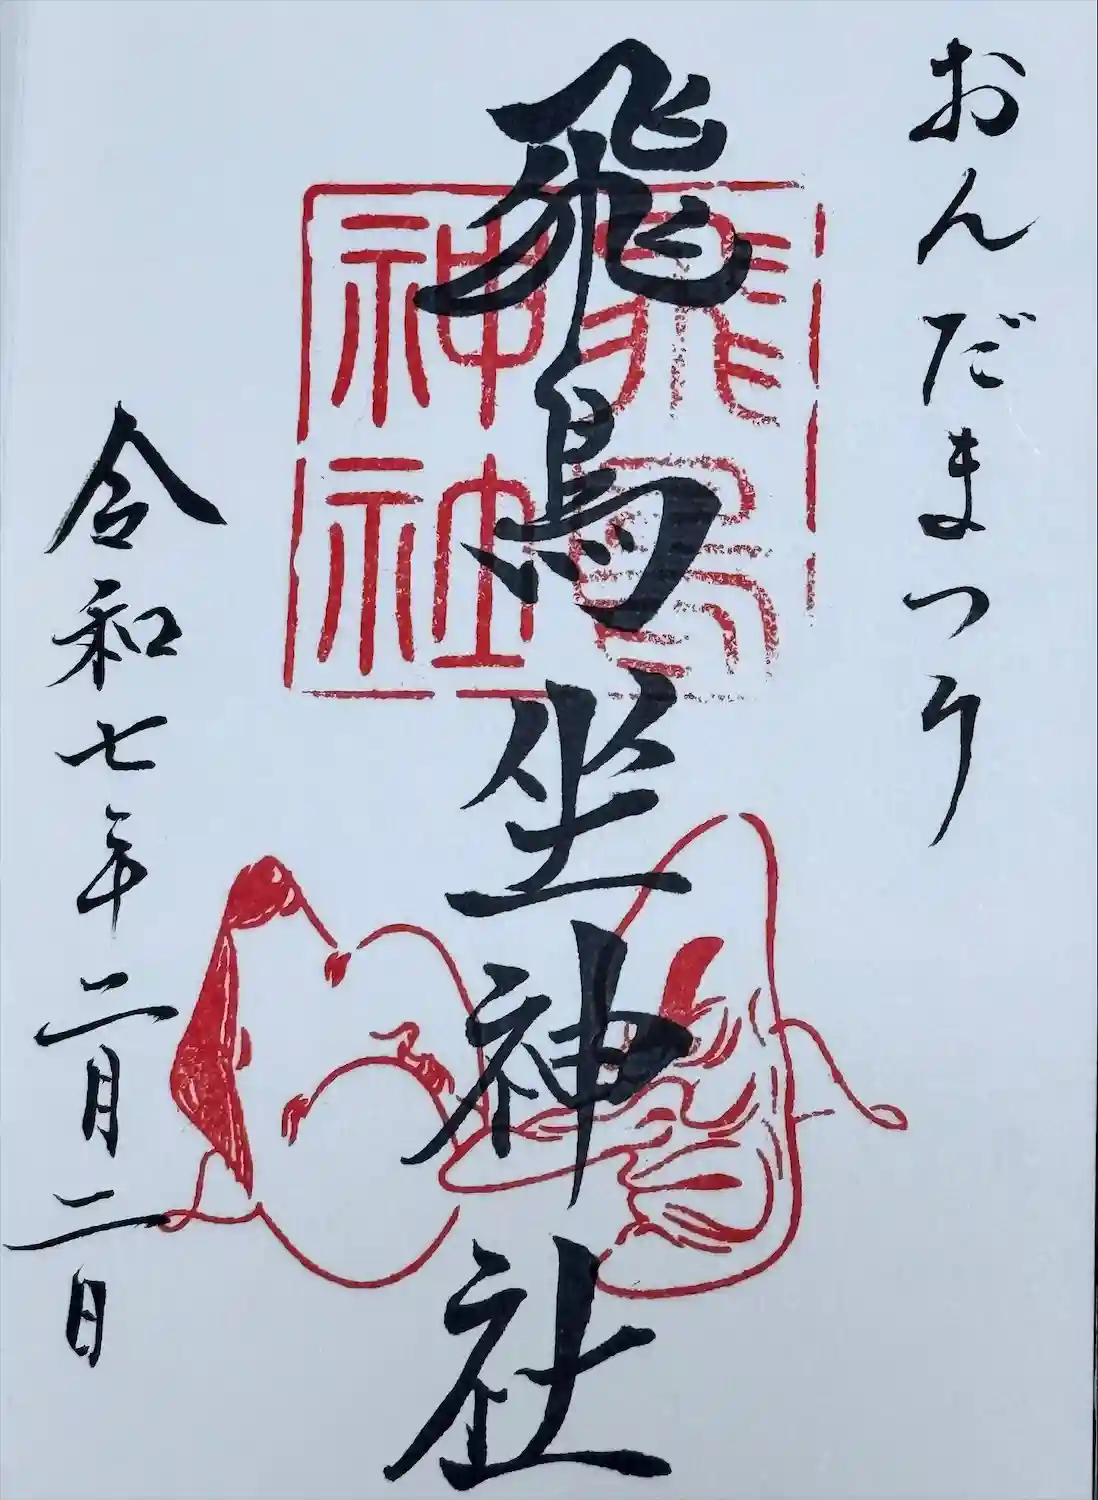 おんだまつり
飛鳥坐神社
飛鳥
神社
令和七年二月二日